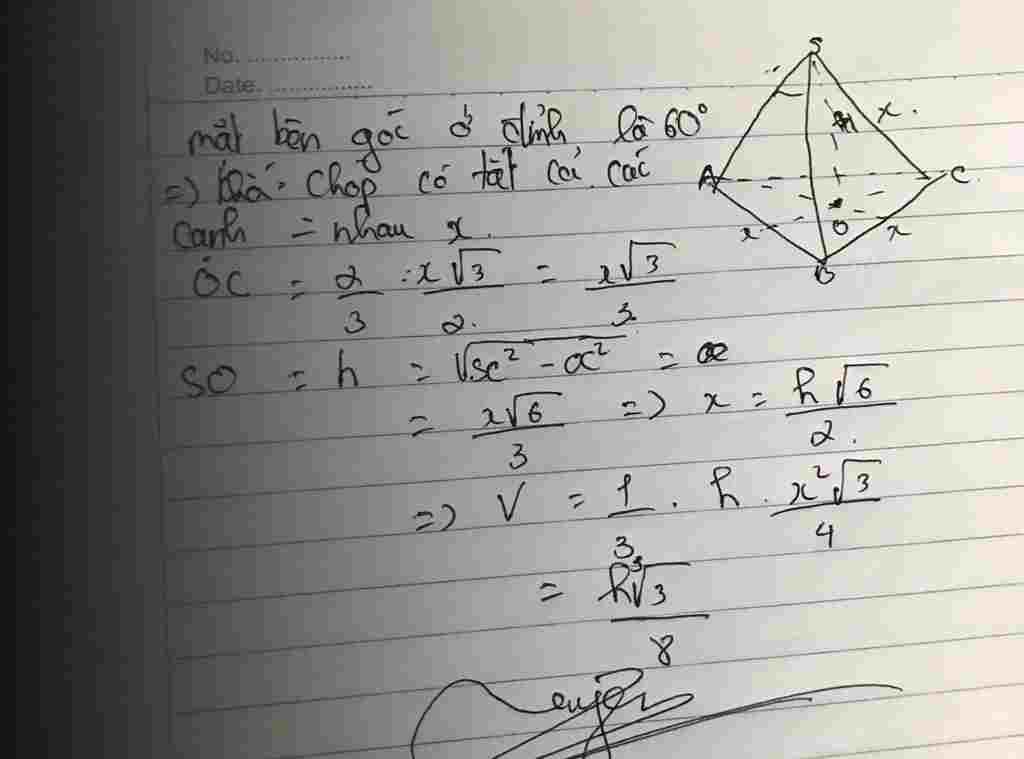 No. ..................
Date. ................
mặt bên góc ở đỉnh là 60°
=) khối chóp có tất cả các
cạnh = nhau x.
OC = 2/3 . x√3/2 = x√3/3
SO = h = √(SC² - OC²) =
= x√6/3 =) x = h√6/2.
=) V = 1/3 . h . x²√3/4
= h³√3/8
S
x.
A
C
O
x
x
B